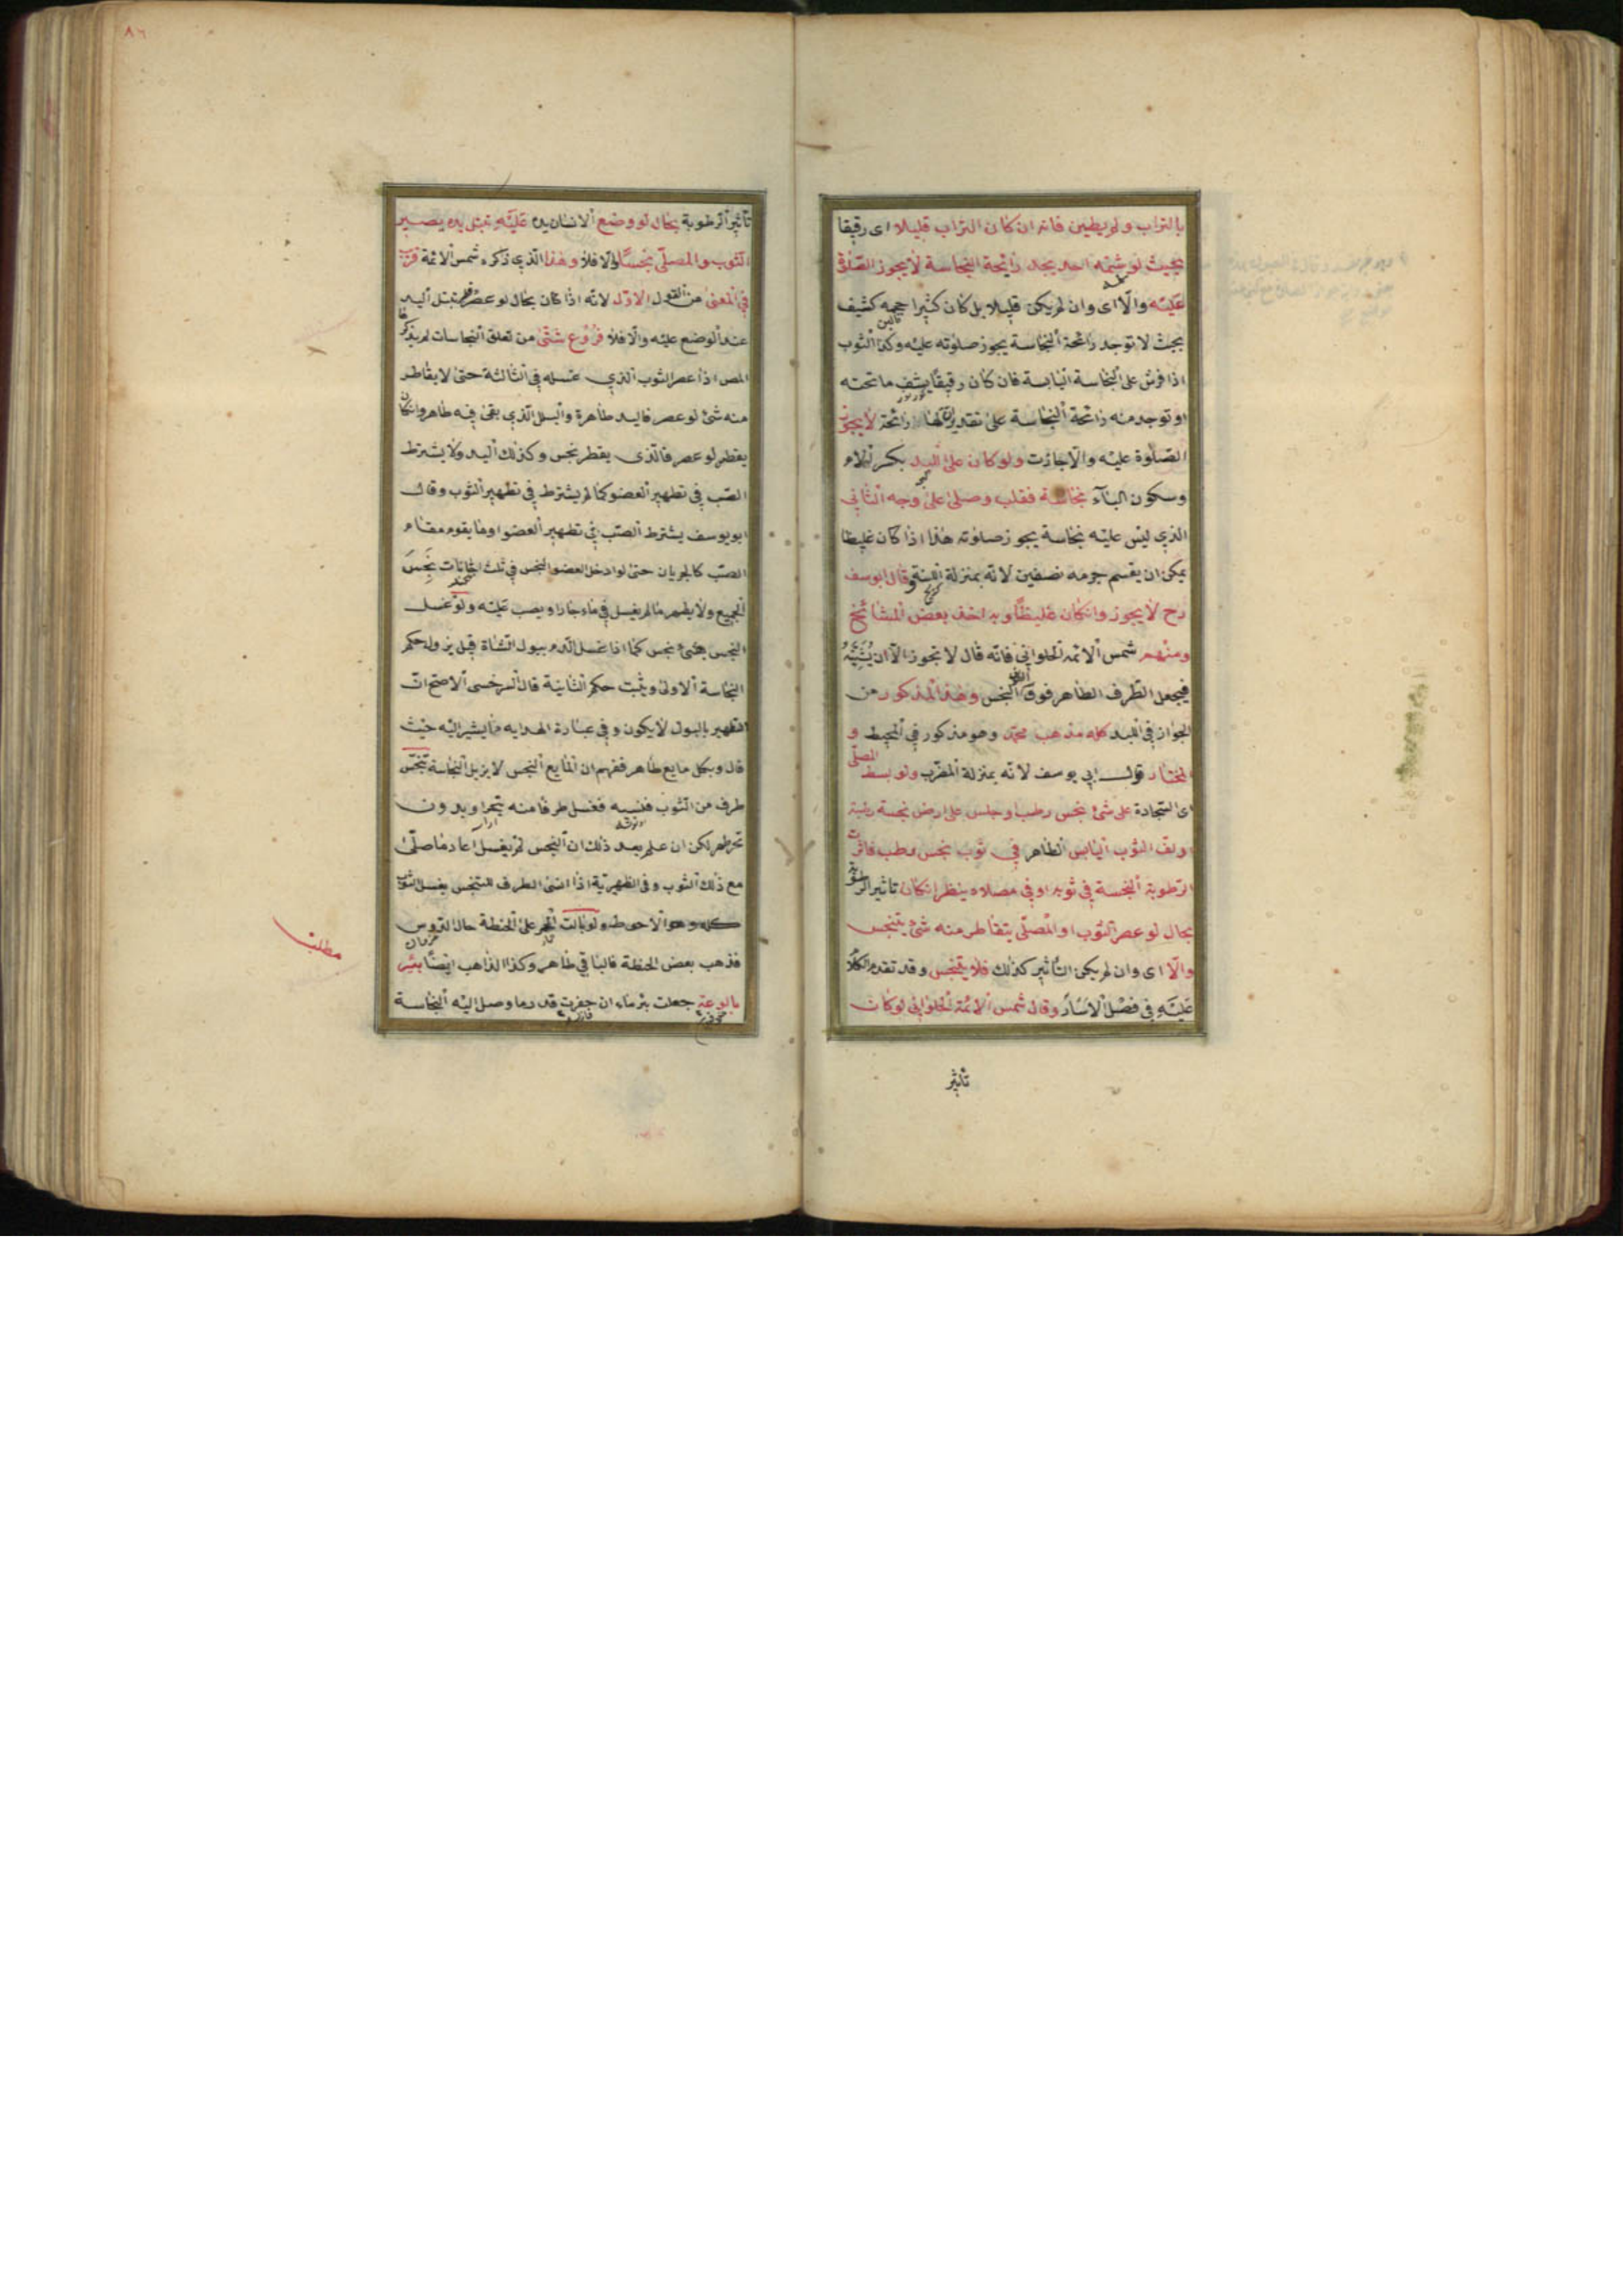 بالتراب ولم يطين فانه ان كان التراب قليلا اى رقيقا
بحيث لو شمه احد يجد رائحة النجاسة لا يجوز الصلوة
عليه والا اى وان لم يكن قليلا بل كان كثيرا حجمه كثيف
بحيث لا توجد رائحة النجاسة يجوز صلوته عليه وكذا الثوب
اذا فرش على النجاسة اليابسة فان كان رقيقا يشف ما تحته
او توجد منه رائحة النجاسة على تقدير ان لها رائحة لا يجوز
الصلوة عليه والا جازت ولو كان على اللبد بكسر اللام
وسكون الباء نجاسة فقلب وصلى على وجه الثانى
الذي ليس عليه نجاسة يجوز صلوته هذا اذا كان غليظا
يمكن ان يقسم جرمه نصفين لانه بمنزلة وقال ابو يوسف
رح لا يجوز وانكان غليظا وبه اخذ بعض المشائخ
ومنهم شمس الائمة الحلوانى فانه قال لا تجوز الا ان يثنيه
فيجعل الطرف الطاهر فوق النجس وهذا المذكور من
الجواز في اللبد كله مذهب محمد وهو مذكور في المحيط و
المختار قول ابى يوسف لانه بمنزلة المضرب ولو بسط المصلى
اى السجادة على شئ نجس رطب او جلس على ارض نجسة رطبة
او لف الثوب اليابس الطاهر في ثوب نجس رطب فاثرت
الرطوبة النجسة في ثوبه او في مصلاه ينظر انكان تاثير الرطوبة
بحال لو عصر الثوب او المصلى يتقاطر منه شئ يتنجس
والا اى وان لم يكن التاثير كذلك فلا يتنجس وقد تقدم الكلام
عليه في فصل الاسار وقال شمس الائمة الحلوانى لو كان
تأثير
تأثير الرطوبة بحال لو وضع الانسان يده عليه تبتل يده يصير
الثوب والمصلى نجسا والا فلا وهذا الذي ذكره شمس الائمة قريب
في المعنى من القول الاول لانه اذا كان بحال لو عصر قطر تبتل اليد
عند الوضع عليه والا فلا فروع شتى من تعلق النجاسات لم يذكرها
المص اذا عصر الثوب الذي غسله في الثالثة حتى لا يقاطر
منه شئ لو عصر فاليد طاهرة والبلل الذي بقى فيه طاهر وانكان
يقطر لو عصر فالذى يقطر نجس وكذلك اليد ولا يشترط
الصب في تطهير العضو كما لم يشترط في تطهير الثوب وقال
ابو يوسف يشترط الصب في تطهير العضو او ما يقوم مقام
الصب كالجريان حتى لو ادخل العضو النجس في ثلث اجانات نجس
الجميع ولا يطهر ما لم يغسل في ماء جار او يصب عليه ولو غسل
النجس بشئ نجس كما اذا غسل الدم ببول الشاة قيل يزول حكم
النجاسة الاولى ويثبت حكم الثانية قال السرخسى الاصح ان
التطهير بالبول لا يكون وفي عبارة الهداية ما يشير اليه حيث
قال وبكل مايع طاهر ففهم ان المايع النجس لا يزيل النجاسة تنجس
طرف من الثوب فنسيه فغسل طرفا منه بتحر او بدون
تحر طهر لكن ان علم بعد ذلك ان النجس لم يغسل اعاد ما صلى
مع ذلك الثوب وفى الظهيرية اذا نسى الطرف المتنجس يغسل الثوب
كله وهو الاحوط ولو بالت الحمر على الحنطة حال الدوس
فذهب بعض الحنطة فالباقي طاهر وكذا الذاهب ايضا بئر
مطلب
بالوعة جعلت بئر ماء ان حفرت قدر ما وصل اليه النجاسة